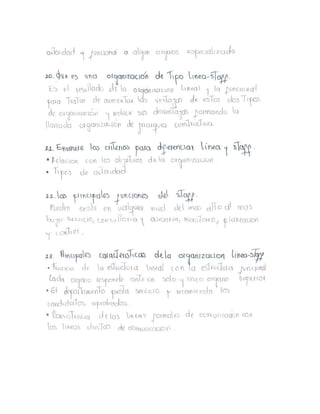 autoridad y funciona a algun organo especializado
20. Que es una organización de Tipo linea-staff.
Es el resultado de la organizacion lineal y la funcional
para Tratar de aumentar las ventajas de estos dos Tipos
de organización y reducir sus desventajas formando la
llamada organización de jerarquia consultiva.
21. Enumere los criterios para diferenciar linea y staff.
• Relacion con los objetivos de la organizacion
• Tipos de autoridad
22. las principales funciones del staff.
Pueden existir en cualquier nivel del mas alto al mas
bajo: servicio, consultoria y asesoria, monitoreo, planeacion
y control.
23. Principales caracteristicas de la organizacion linea-staff
• Fusion de la estructura lineal con la estructura funcional
Cada organo responde ante un solo y unico organo superior
• El departamento presta servicios y recomienda los
candidatos aprobados.
• Coexistencia de las lineas formales de comunicación con
las lineas directas de comunicacion.